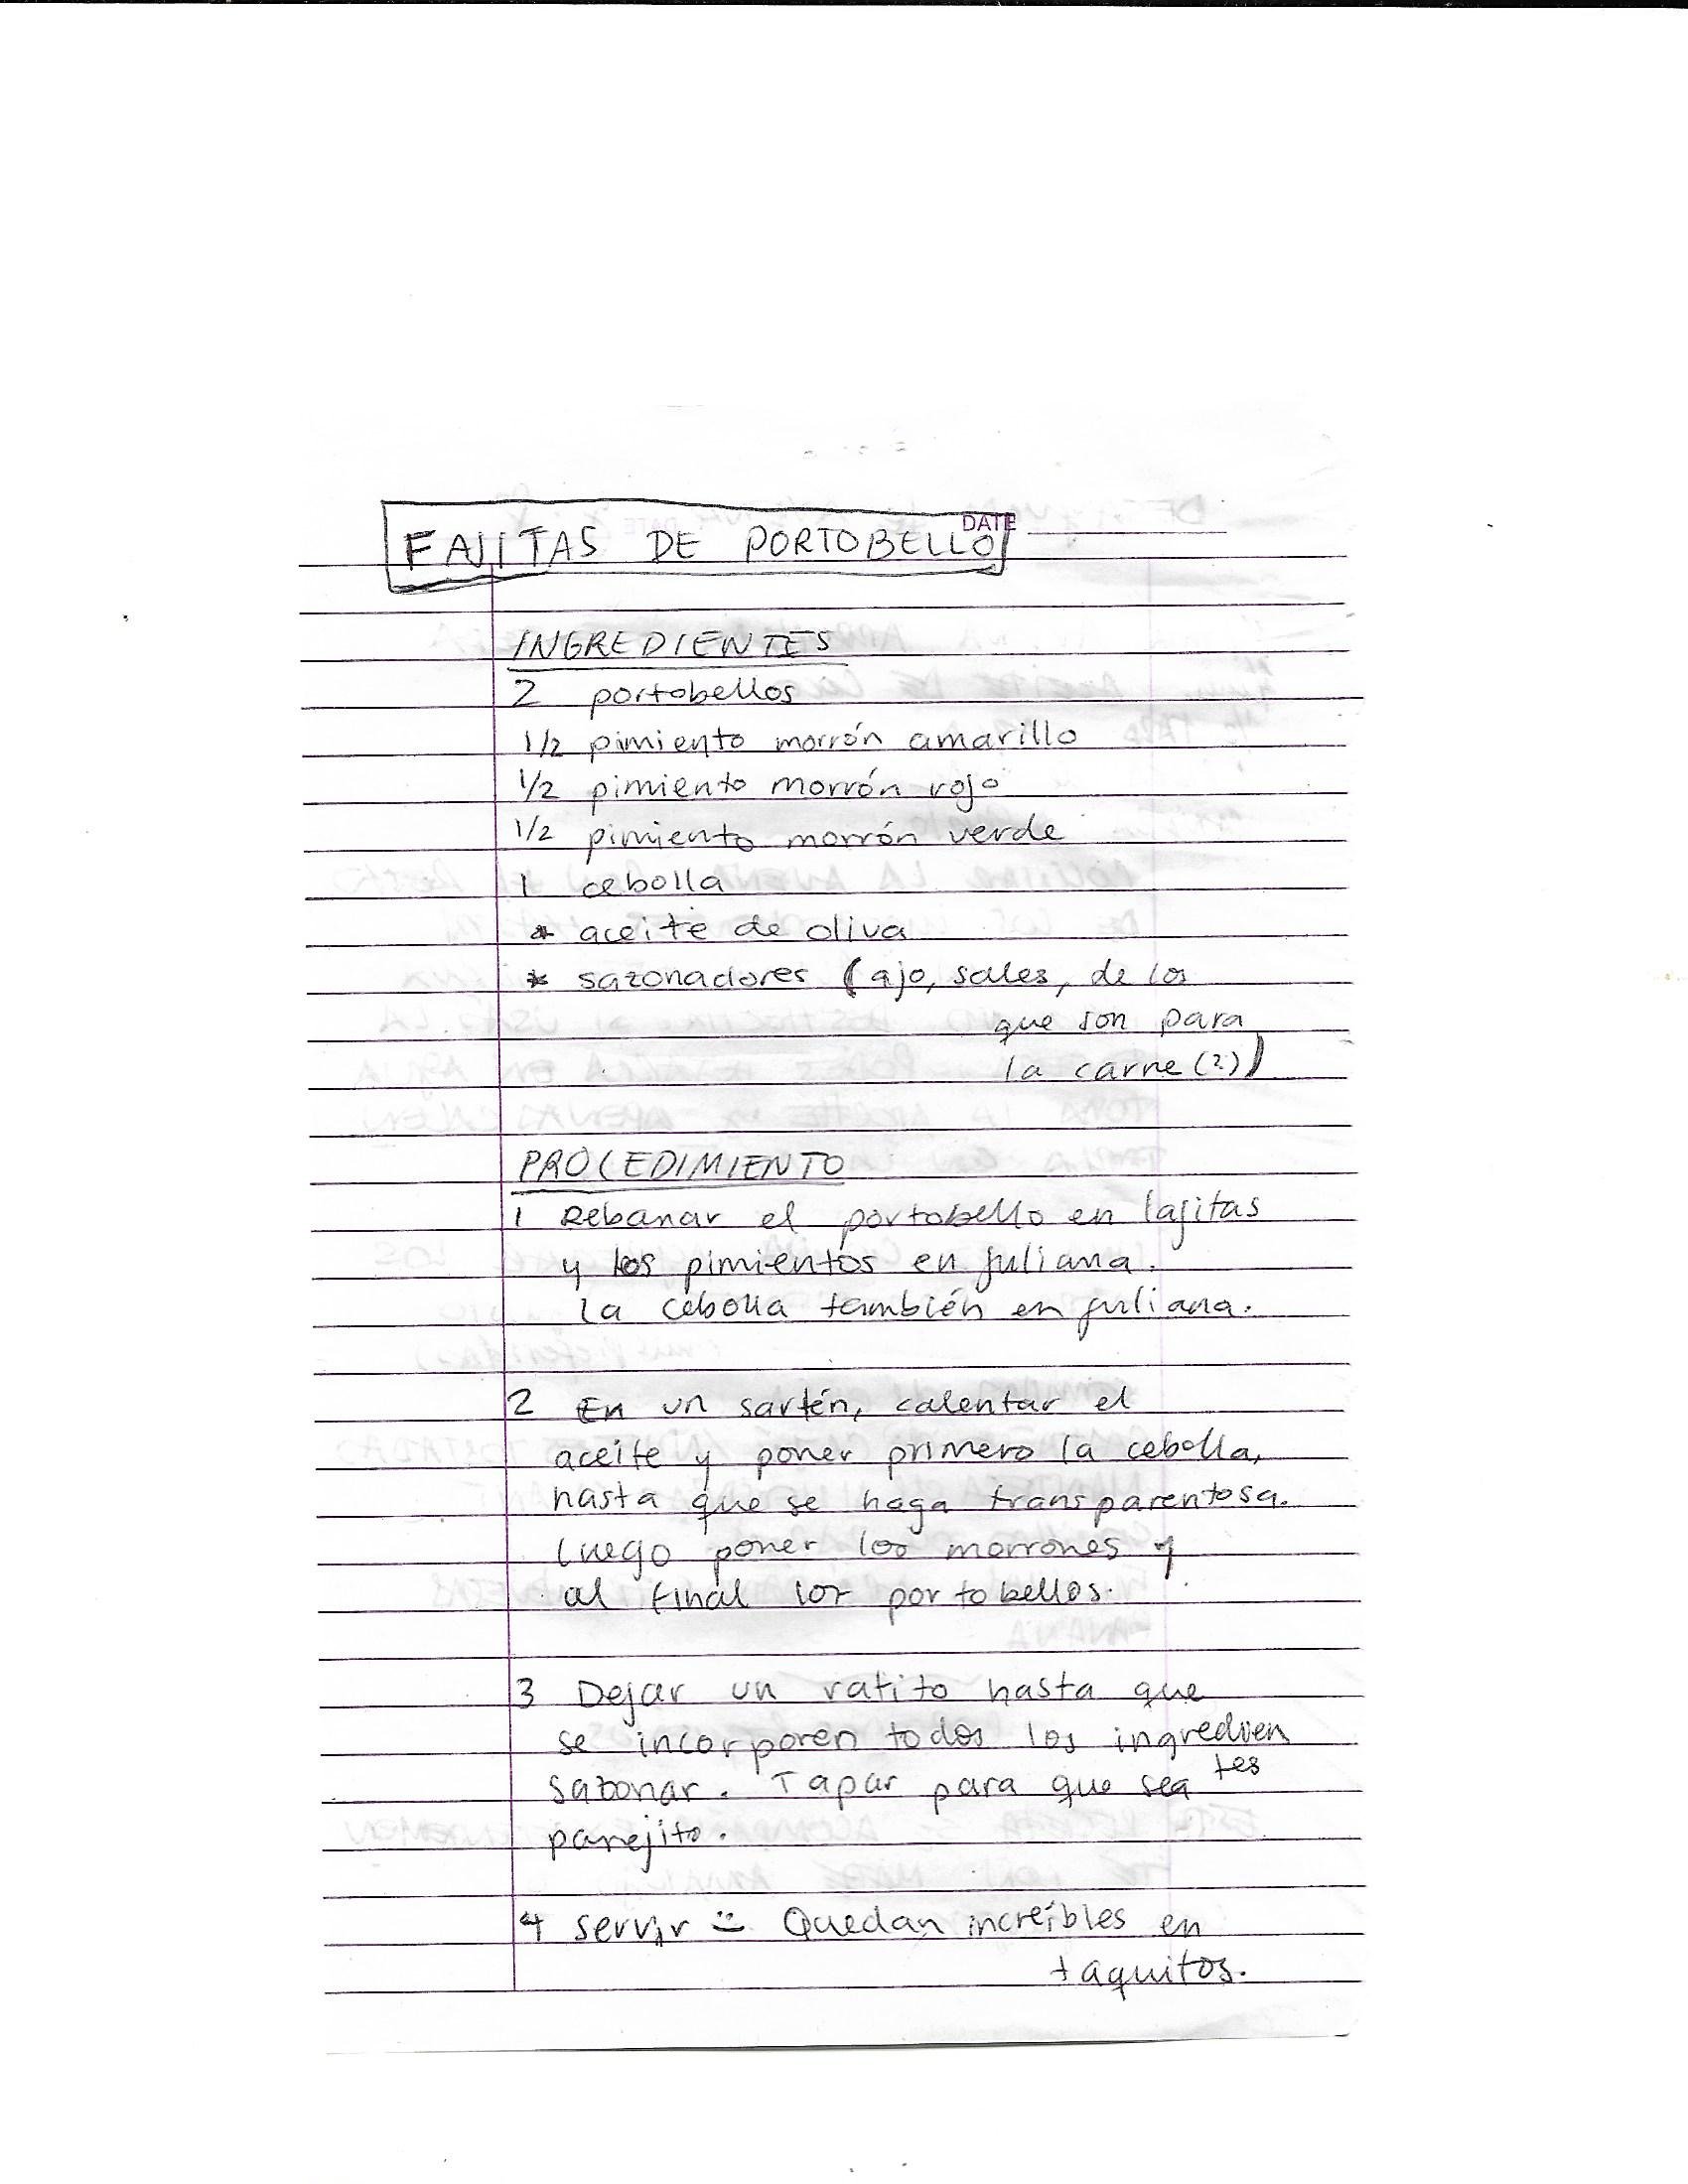 DATE
FAJITAS DE PORTOBELLO
INGREDIENTES
2 portobellos
1/2 pimiento morrón amarillo
1/2 pimiento morrón rojo
1/2 pimiento morrón verde
1 cebolla
* aceite de oliva
* sazonadores (ajo, sales, de los
que son para
la carne (?))
PROCEDIMIENTO
1 Rebanar el portobello en lajitas
y los pimientos en juliana.
La cebolla también en juliana.
2 En un sartén, calentar el
aceite y poner primero la cebolla,
hasta que se haga transparentosa.
Luego poner los morrones y
al final los portobellos.
3 Dejar un ratito hasta que
se incorporen todos los ingredien
tes
sazonar. Tapar para que sea
parejito.
4 servir :) Quedan increíbles en
taquitos.